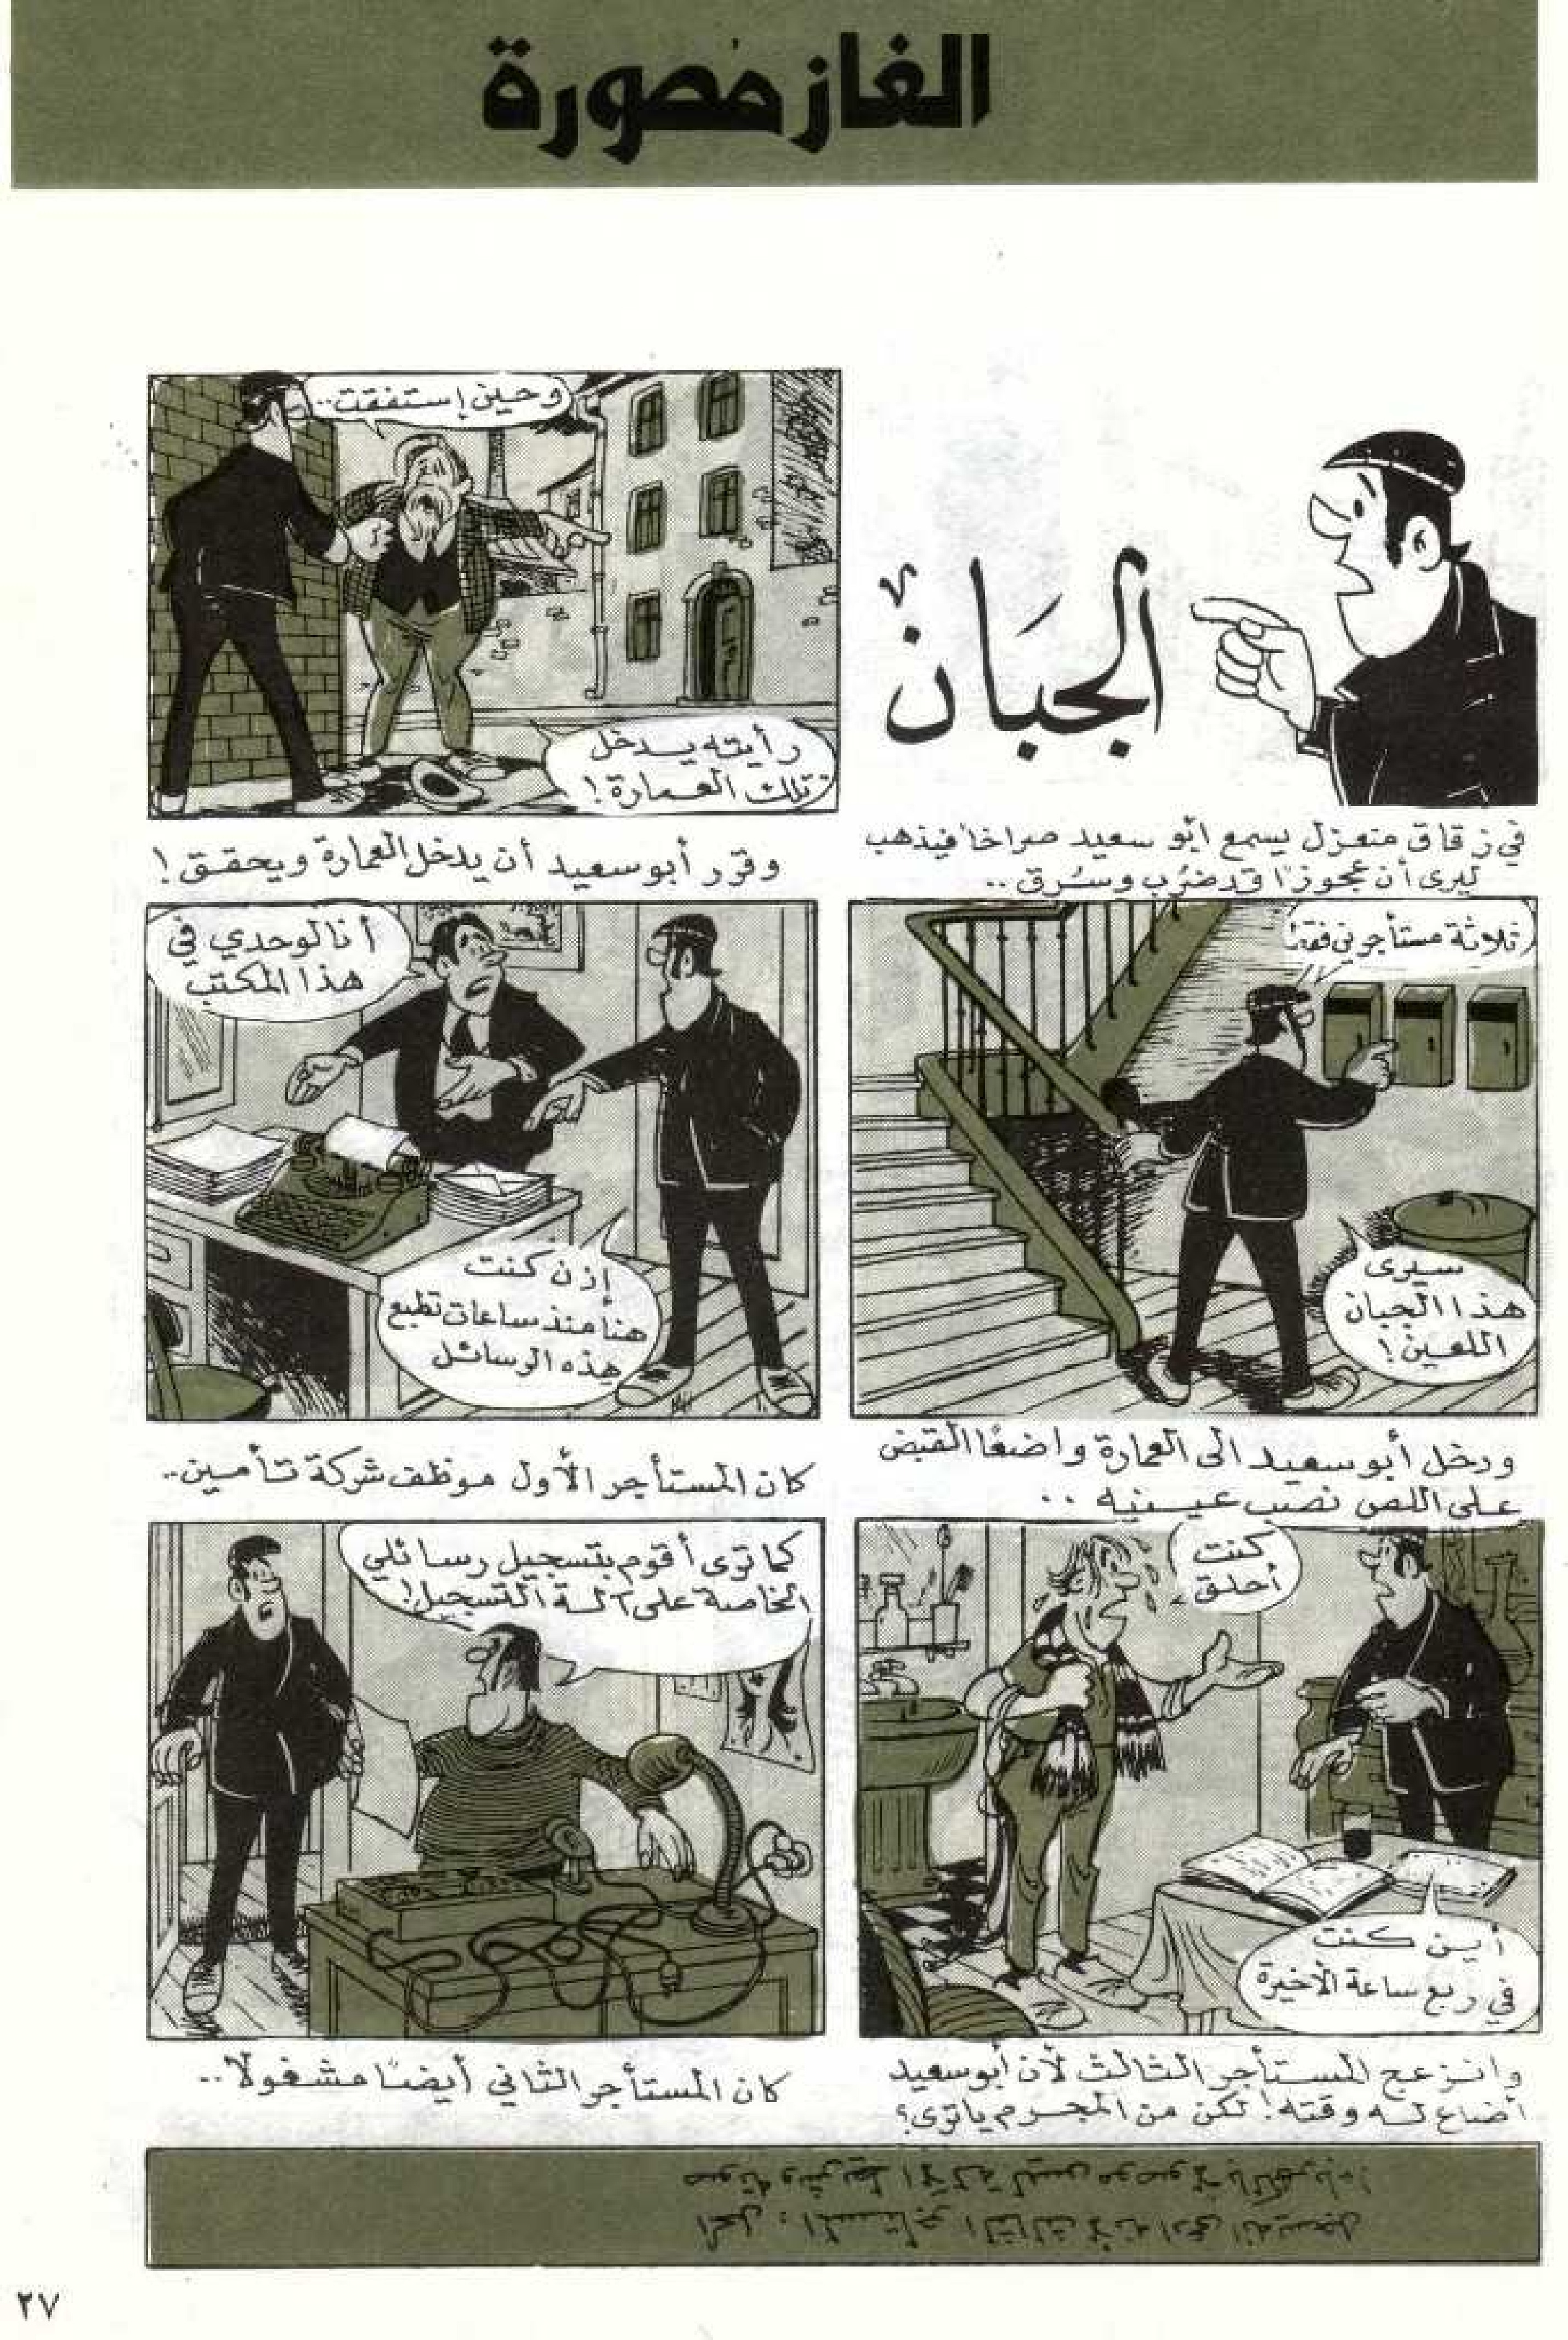 الغاز مُصورة
الجبَان
في زقاق منعزل يسمع ابُو سعيد صراخاً فيذهب
ليرى أن عجوزًا قد ضُرب وسُرق ..
وحين إستفقت..
رأيته يدخل
تلك العمارة!
وقرر أبو سعيد أن يدخل العمارة ويحقق!
ثلاثة مستأجرين فقط
سيرى
هذا الجبان
اللعين!
ودخل أبو سعيد الى العمارة واضعًا القبض
على اللص نصب عينيه ..
أنا لوحدي في
هذا المكتب
إذن كنت
هنا منذ ساعات تطبع
هذه الرسائل
كان المستأجر الأول موظف شركة تأمين..
كنت
أحلق
أين كنت
في ربع ساعة الاخيرة
وانزعج المستأجر الثالث لأن أبو سعيد
أضاع له وقته! لكن من المجرم يا ترى؟
كما ترى أقوم بتسجيل رسائلي
الخاصة على آلة التسجيل!
كان المستأجر الثاني أيضًا مشغولًا..
الحل : المستأجر الثالث لأنه ادعى انه يسجل
صوته وشريط الآلة ليس موصولا بالكهرباء!
٢٧